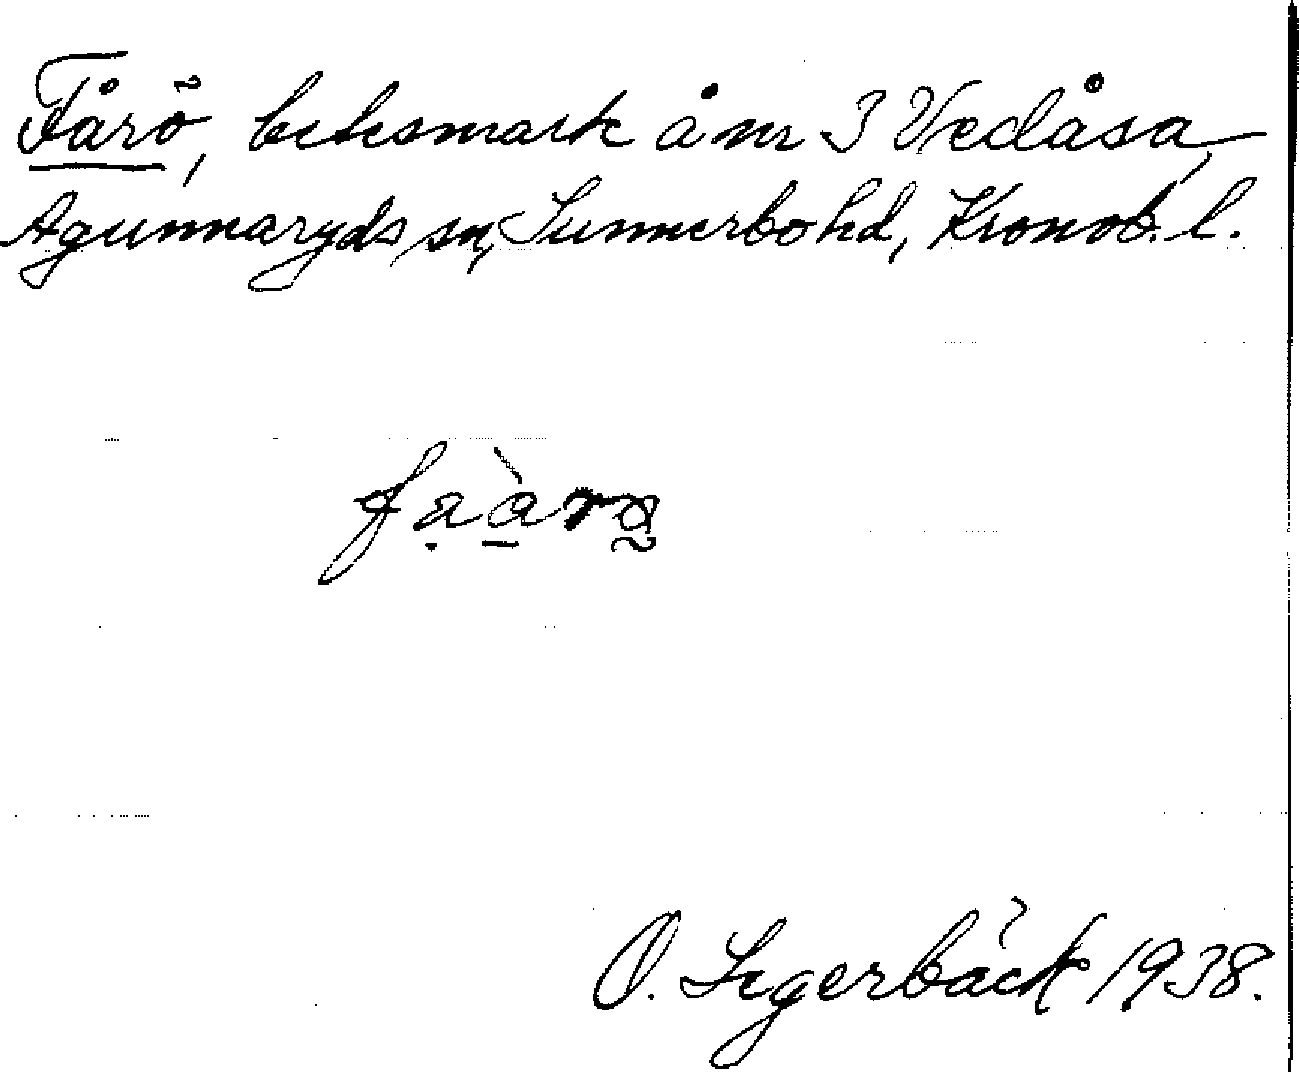 Fårö, betesmark å nr 3 Vedåsa,
Agunnaryds sn, Sunnerbo hd, Kronob. l.
O. Segerbäck 1938.